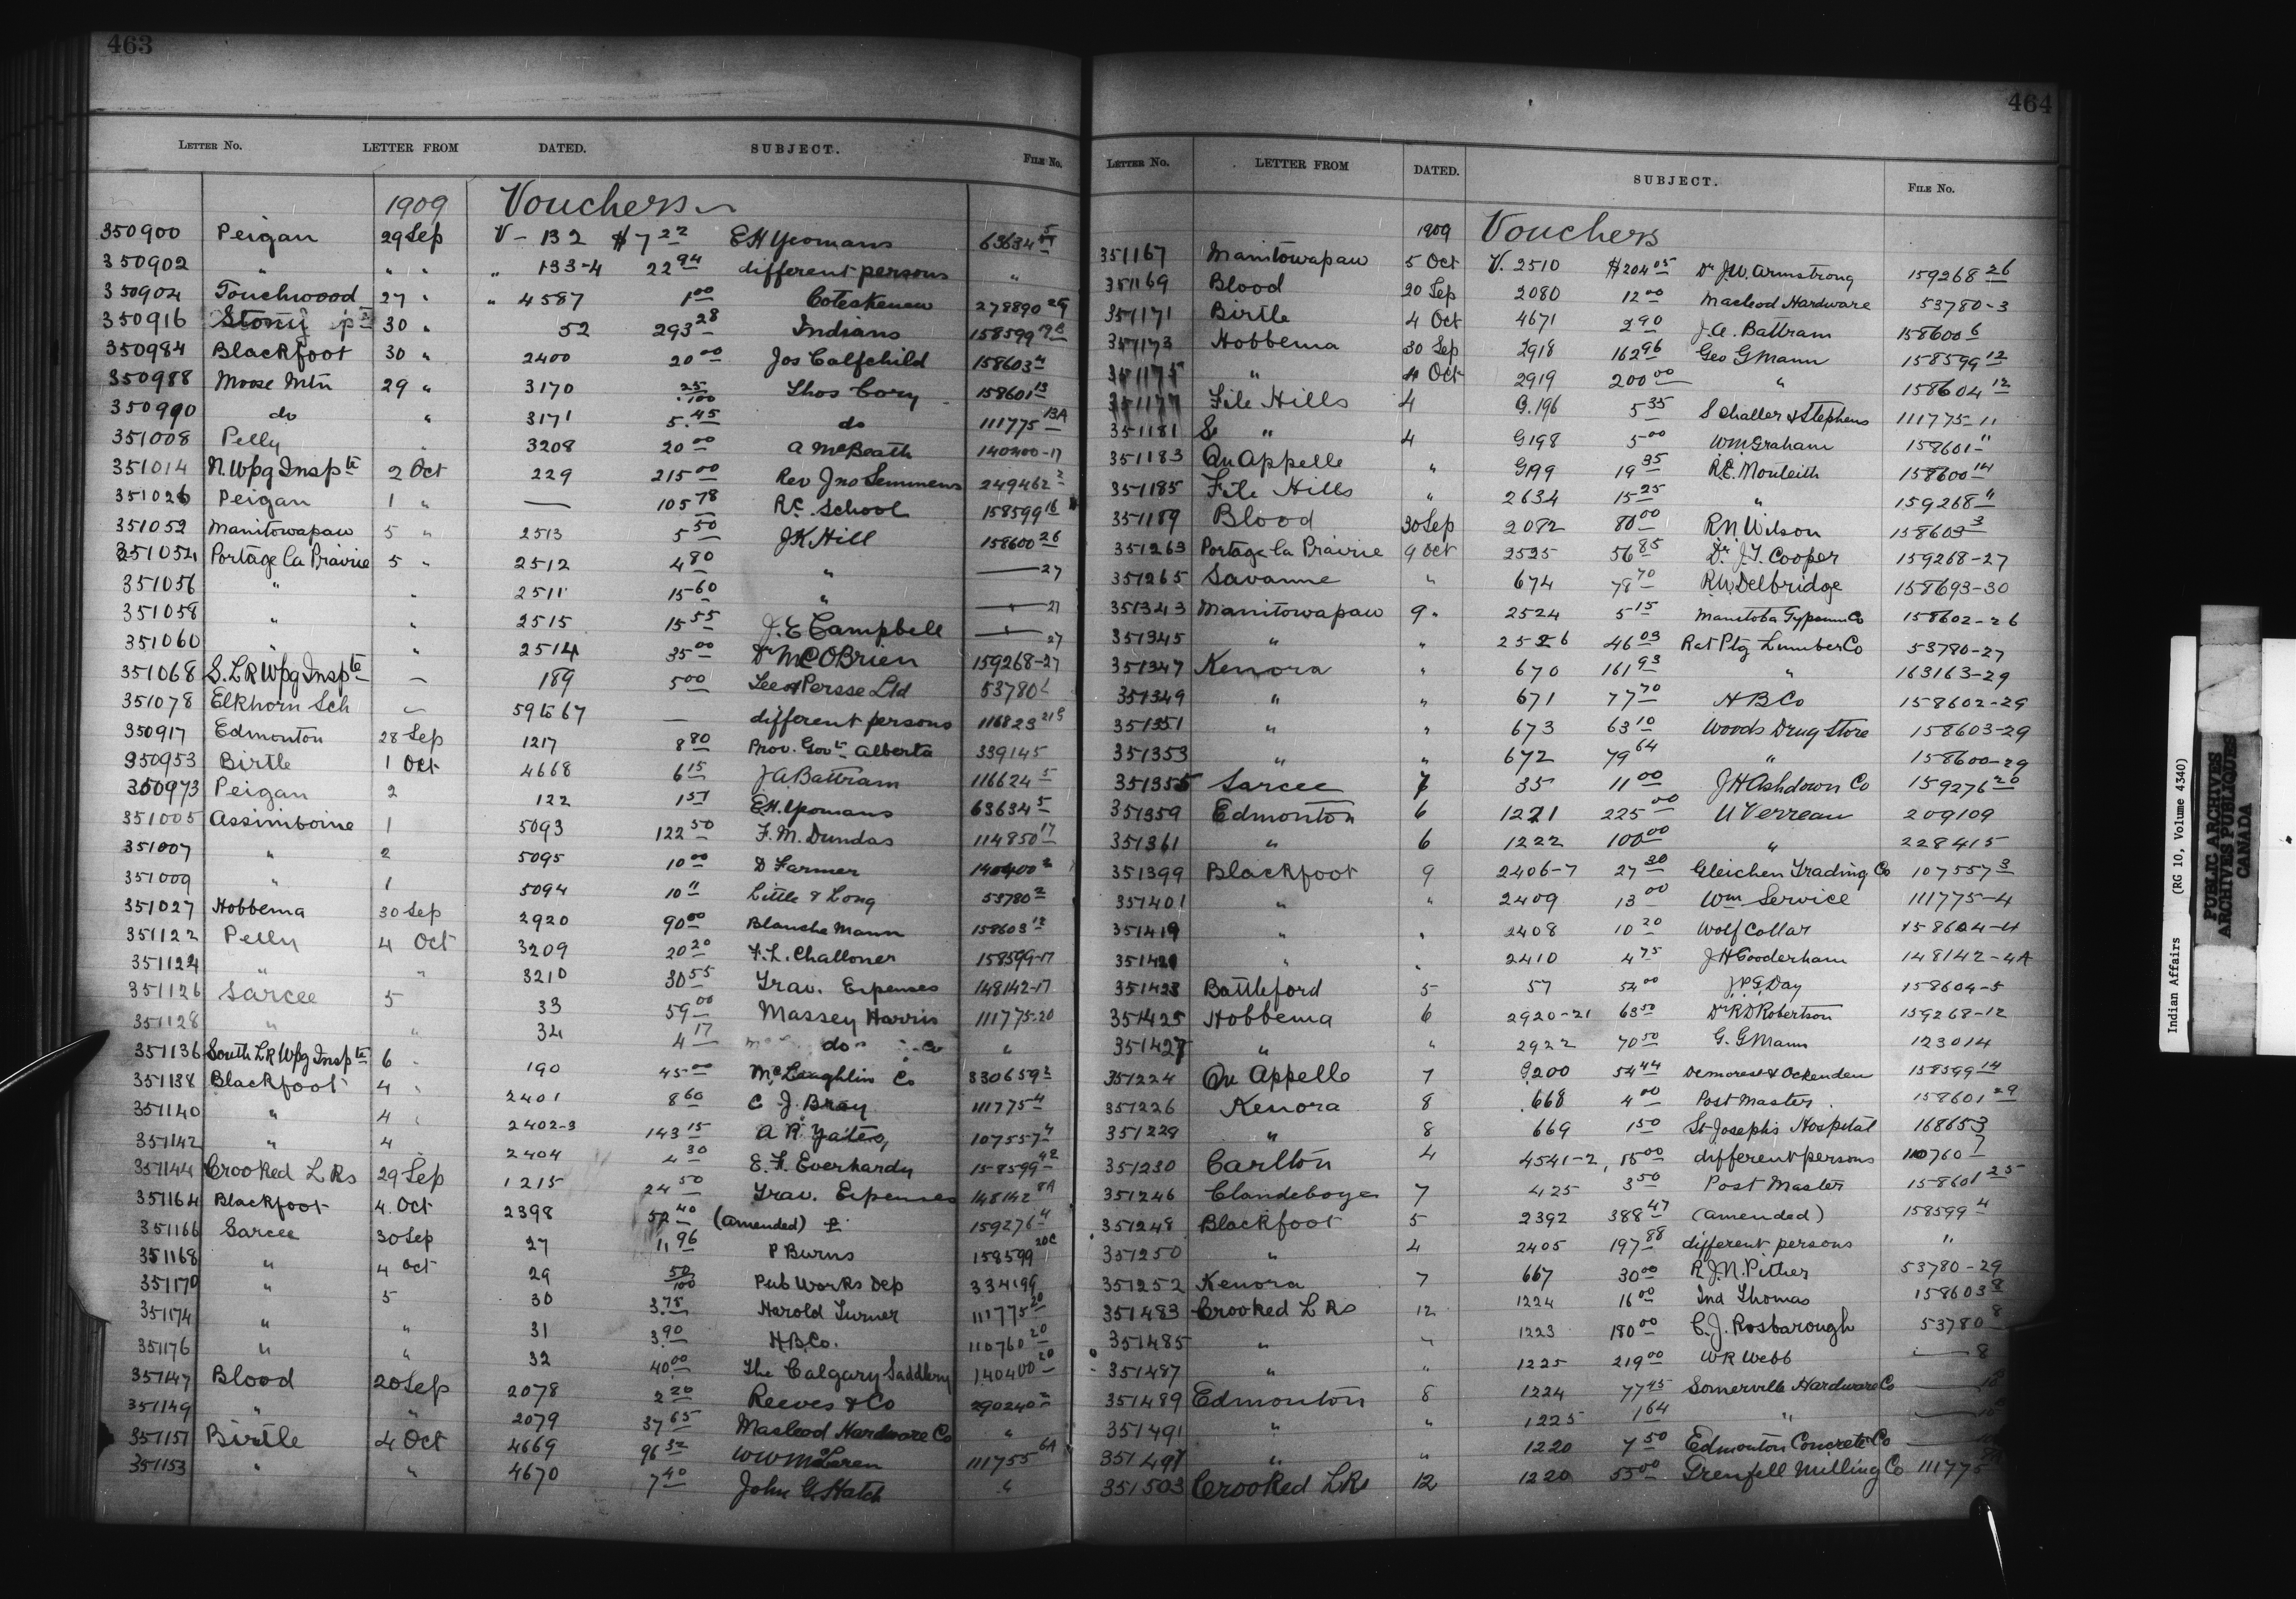 463
LETTER NO. LETTER FROM DATED. SUBJECT. FILE NO.
1909 Vouchers
350900 Peigan 29 Sep V - 132 $7 22 E H Yeomans 63634 5
350902 " " " " 133-4 22 94 different persons "
350904 Touchwood 27 " " 4587 1 00 Coteskenew 278890
350916 Stony 30 " 52 293 28 Indians 158599
350984 Blackfoot 30 " 2400 20 00 Jos Calfchild 158603 4
350988 Moose Mtn 29 " 3170 25/100 Thos Cory 158601 13
350990 do " 3171 5.45 do 111775 13A
351008 Pelly " 3208 20 00 A McBeath 140400-17
351014 N. Wpg Inspte 2 Oct 229 215 00 Rev Jno Semmens 249462 2
351026 Peigan 1 " — 105 78 R.C. School 158599 16
351052 Manitowapaw 5 " 2513 5 50 J K Hill 158600 26
351054 Portage la Prairie 5 " 2512 4 80 " — 27
351056 " " 2511 15 60 " — 27
351058 " " 2515 15 55 J. E Campbell — 27
351060 " " 2514 35 00 Dr McOBrien 159268-27
351068 S. L R Wpg Inspte — 189 5 00 Leeof Persse Ltd 53780
351078 Elkhorn Sch — 59 to 67 — different persons 116823
350917 Edmonton 28 Sep 1217 8 80 Prov. Govt. Alberta 339145
350953 Birtle 1 Oct 4668 6 15 J. A. Battram 116624 5
350973 Peigan 2 122 1 51 E.H. Yeomans 63634 5
351005 Assiniboine 1 5093 122 50 F. M. Dundas 114850 17
351007 " 2 5095 10 00 D Farmer 140400 2
351009 " 1 5094 10 " Little & Long 53780 2
351027 Hobbema 30 Sep 2920 90 00 Blanche Mann 158603 12
351122 Pelly 4 Oct 3209 20 20 F. L. Challoner 158599-17
351124 " " 3210 30 55 Trav. Expenses 148142-17
351126 Sarcee 5 33 59 00 Massey Harris 111775-20
351128 " " 34 4 17 do "
351136 South L R Wpg Inspte 6 190 45 00 McLaughlin Co 330659 2
351138 Blackfoot 4 2401 8 60 C J. Bray 111775 4
351140 " 4 2402-3 143 15 A R. Yates, 107557 4
351142 " 4 2404 4 30 E. F. Everhardy 158599
351144 Crooked L Rs 29 Sep 1215 24 50 Trav. Expenses 148142 8A
351164 Blackfoot 4. Oct 2398 52 40 (amended) 159276 4
351166 Sarcee 30 Sep 27 11 96 P Burns 158599 20C
351168 " 4 Oct 29 50/100 Pub Works Dep 334199
351170 " 5 30 3.75 Harold Turner 111775 20
351174 " " 31 3.90 H.B.Co. 110760 20
351176 " " 32 40.00 The Calgary Saddlery 140400 20
351147 Blood 20 Sep 2078 2 20 Reeves & Co 290240
351149 " " 2079 37 65 Macleod Hardware Co "
351151 Birtle 4 Oct 4669 96 32 W W McLaren 111755 6A
351153 " " 4670 7 40 John G. Hatch "
464
LETTER NO. LETTER FROM DATED. SUBJECT. FILE NO.
1909 Vouchers
351167 Manitowapaw 5 Oct V. 2510 $204 05 Dr J.W. Armstrong 159268 26
351169 Blood 20 Sep 2080 12 00 Macleod Hardware 53780-3
351171 Birtle 4 Oct 4671 2 90 J. A. Battram 158600 6
351173 Hobbema 30 Sep 2918 162 96 Geo G Mann 158599 12
351175 " 4 Oct 2919 200 00 " 158604 12
351177 File Hills 4 G.196 5 35 Schaller & Stephens 111775-11
351181 " 4 G198 5 00 Wm Graham 158601 11
351183 Qu Appelle " G199 19 35 R.E. Monleith 158600 14
351185 File Hills " 2634 15 25 " 159268 11
351189 Blood 30 Sep 2082 80 00 R N Wilson 158603 3
351263 Portage la Prairie 9 Oct 2525 56 85 Dr. J. T. Cooper 159268-27
351265 Savanne " 674 78 70 R.W. Delbridge 158693-30
351343 Manitowapaw 9 " 2524 5 15 Manitoba Gypsum Co 158602-26
351345 " " 2526 46 03 Rat Ptg Lumber Co 53780-27
351347 Kenora " 670 161 93 " 163163-29
351349 " " 671 77 70 H B Co 158602-29
351351 " " 673 63 10 Woods Drug Store 158603-29
351353 " " 672 79 64 " 158600-29
351355 Sarcee 7 35 11 00 J H Ashdown Co 159276 20
351359 Edmonton 6 1221 225 00 U Verreau 209109
351361 " 6 1222 100 00 " 228415
351399 Blackfoot 9 2406-7 27 30 Gleichen Trading Co 107557 3
351401 " " 2409 13 00 Wm Service 111775-4
351419 " " 2408 10 20 Wolf Collar 158604-4
351421 " " 2410 4 75 J H Gooderham 148142-4A
351423 Battleford 5 57 54 00 J.P.G. Day 158604-5
351425 Hobbema 6 2920-21 63 50 Dr R.D Robertson 159268-12
351427 " " 2922 70 50 G. G Mann 123014
351224 Qu Appelle 7 G.200 54 44 Demorest & Ockenden 158599 14
351226 Kenora 8 668 4 00 Post Master 158601 29
351228 " 8 669 1 50 St Josephs Hospital 168653
351230 Carlton 4 4541-2, 15 00 different persons 110760 7
351246 Clandeboye 7 425 3 50 Post Master 158601 25
351248 Blackfoot 5 2392 388 47 (amended) 158599 4
351250 " 4 2405 197 88 different persons "
351252 Kenora 7 667 30 00 R. J. N. Pither 53780-29
351483 Crooked L Rs 12 1224 16 00 Ind Thomas 158603 8
351485 " " 1223 180 00 C. J. Rosbarough 53780 8
351487 " " 1225 219 00 W R Webb — 8
351489 Edmonton 8 1224 77 45 Somerville Hardware Co —
351491 " " 1225 1 64 " —
351497 " " 1220 7 50 Edmonton Concrete Co —
351503 Crooked L Rs 12 1220 55 00 Grenfell Milling Co 111775
Indian Affairs (RG 10, Volume 4340)
PUBLIC ARCHIVES
ARCHIVES PUBLIQUES
CANADA